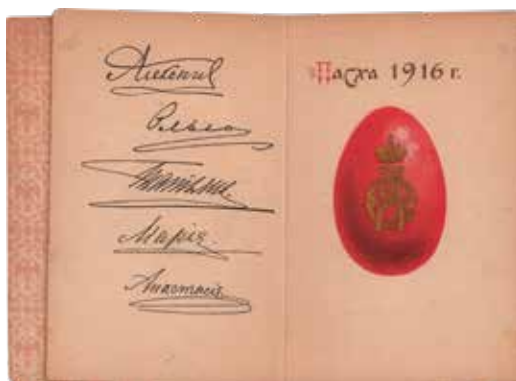 Алексѣй
Ольга
Татьяна
Марія
Анастасія
Пасха 1916 г.